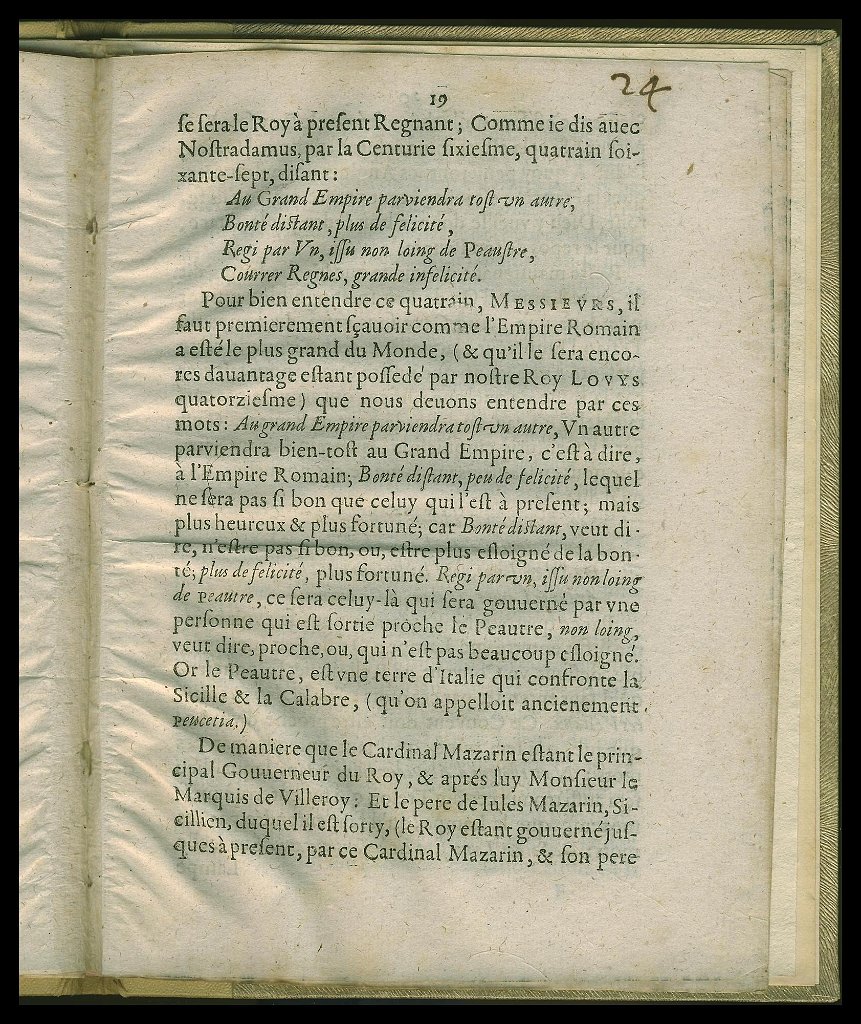 19
24
ſe ſera le Roy à preſent Regnant ; Comme ie dis auec
Noſtradamus, par la Centurie ſixieſme, quatrain ſoi-
xante-ſept, diſant :
Au Grand Empire parviendra toſt vn autre,
Bonté diſtant, plus de felicité,
Regi par Vn, iſſu non loing de Peauſtre,
Courrer Regnes, grande infelicité.
Pour bien entendre ce quatrain, MESSIEVRS, il
faut premierement ſçauoir comme l'Empire Romain
a eſté le plus grand du Monde, (& qu'il le ſera enco-
res dauantage eſtant poſſedé par noſtre Roy LOVYS
quatorzieſme) que nous deuons entendre par ces
mots : Au grand Empire parviendra toſt vn autre, Vn autre
parviendra bien-toſt au Grand Empire, c'eſt à dire,
à l'Empire Romain; Bonté diſtant, peu de felicité, lequel
ne ſera pas ſi bon que celuy qui l'eſt à preſent; mais
plus heureux & plus fortuné; car Bonté diſtant, veut di-
re, n'eſtre pas ſi bon, ou, eſtre plus eſloigné de la bon-
té; plus de felicité, plus fortuné. Regi par vn, iſſu non loing
de Peautre, ce ſera celuy-là qui ſera gouuerné par vne
perſonne qui eſt ſortie proche le Peautre, non loing,
veut dire, proche, ou, qui n'eſt pas beaucoup eſloigné.
Or le Peautre, eſt vne terre d'Italie qui confronte la
Sicille & la Calabre, (qu'on appelloit ancienement
Peucetia.)
De maniere que le Cardinal Mazarin eſtant le prin-
cipal Gouuerneur du Roy, & aprés luy Monſieur le
Marquis de Villeroy : Et le pere de Iules Mazarin, Si-
cillien, duquel il eſt ſorty, (le Roy eſtant gouuerné juſ-
ques à preſent, par ce Cardinal Mazarin, & ſon pere